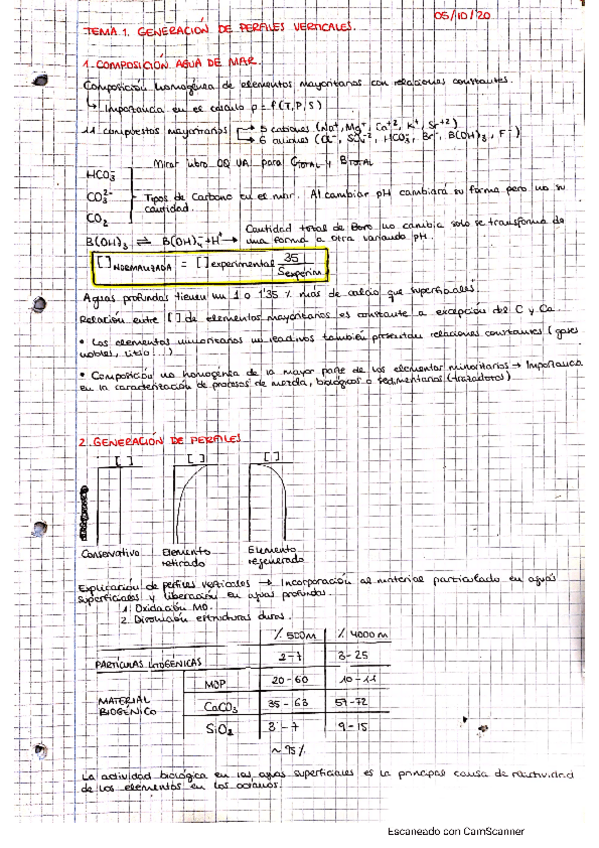 05/10/20
TEMA 1. GENERACIÓN DE PERFILES VERTICALES.
1. COMPOSICIÓN AGUA DE MAR
Composición homogénea de elementos mayoritarios con relaciones constantes.
↳ Importancia en el cálculo ρ = f(T,P,S)
11 compuestos mayoritarios → 5 cationes (Na⁺, Mg⁺, Ca⁺², K⁺, Sr⁺²)
→ 6 aniones (Cl⁻, SO₄⁻², HCO₃⁻, Br⁻, B(OH)₃, F⁻)
Mirar libro OQ UA para C TOTAL y B TOTAL
HCO₃⁻
CO₃²⁻ Tipos de Carbono en el mar. Al cambiar pH cambiará su forma pero no su
CO₂ cantidad.
B(OH)₃ ⇌ B(OH)₄⁻ + H⁺ → Cantidad total de Boro no cambia solo se transforma de
una forma a otra variando pH.
[ ] NORMALIZADA = [ ] experimental 35 / S experim
Aguas profundas tienen un 1 o 1'35 % más de calcio que superficiales.
Relación entre [ ] de elementos mayoritarios es constante a excepción del C y Ca
• Los elementos minoritarios no reactivos también presentan relaciones constantes (gases
nobles, litio...)
• Composición no homogénea de la mayor parte de los elementos minoritarios → Importancia
en la caracterización de procesos de mezcla, biológicos o sedimentarios (trazadores)
2. GENERACIÓN DE PERFILES
[ ] [ ] [ ]
Conservativo Elemento retirado Elemento regenerado
Explicación de perfiles verticales → Incorporación al material particulado en aguas
superficiales y liberación en aguas profundas.
1. Oxidación MO.
2. Disolución estructuras duras.
% 500m % 4000m
PARTÍCULAS LITOGÉNICAS 2-7 3-25
MATERIAL BIOGÉNICO MOP 20-60 10-11
CaCO₃ 35-63 57-72
SiO₂ 3-7 9-15
~95%
La actividad biológica en las aguas superficiales es la principal causa de reactividad
de los elementos en los océanos.
Escaneado con CamScanner